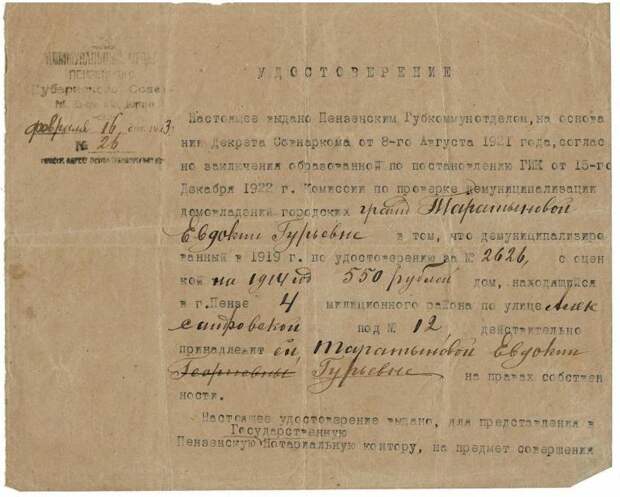 КОММУНАЛЬНЫЙ ОТДЕЛ
ПЕНЗЕНСКИЙ
Губернского Совета
февраля 16 дня 1923 г.
№ 26
УДОСТОВЕРЕНИЕ
Настоящее выдано Пензенским Губкоммунотделом, на основа
нии Декрета Совнаркома от 8-го Августа 1921 года, соглас
но заключения образованной по постановлению ГИК от 15-го
Декабря 1922 г. Комиссии по проверке демуниципализации
домовладений городских гражд Таратыновой
Евдокии Гурьевне в том, что демуниципализиро
ванный в 1919 г. по удостоверению за № 2626, с оцен
кой на 1914 год 550 рублей дом, находящийся
в г. Пензе 4 милиционного района по улице Алек
сандровской под № 12, действительно
принадлежит ей, Таратыновой Евдокии
Георгиевны Гурьевне на правах собствен
ности.
Настоящее удостоверение выдано, для представления в
Государственную
Пензенскую Нотариальную контору, на предмет совершения